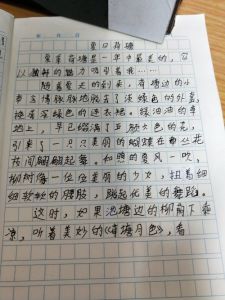 夏日荷塘
家乡荷塘是一年中最美的，它
以独特的魅力吸引着我……
随着夏天的到来，荷塘边的小
草去情脱脱地脱去了淡绿色的外套，
换崔深绿色的连衣裙。绿油油的草
地上，早已缀满了五颜六色的花，
引来了一只只美丽的蝴蝶在丛花
夜间翩翩起舞。和煦的夏风一吹，
柳树像一位位美丽的少女，扭着细
细软软的腰肢，跳起优美的舞蹈。
这时，如果池塘边的柳荫下乘
凉，听着美妙的《荷塘月色》，看